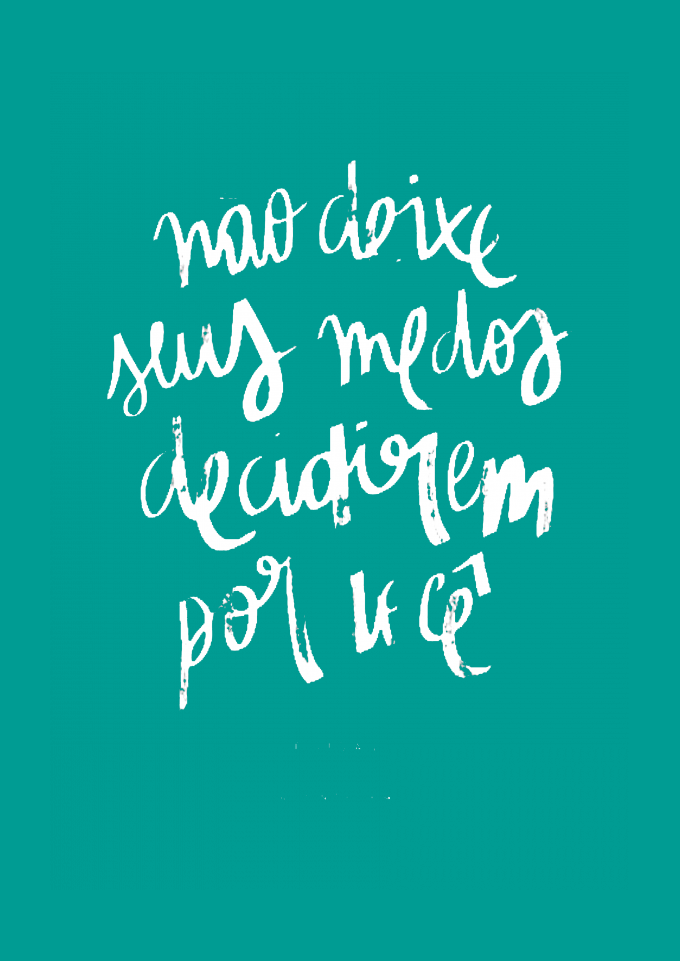 não deixe
seus medos
decidirem
por você